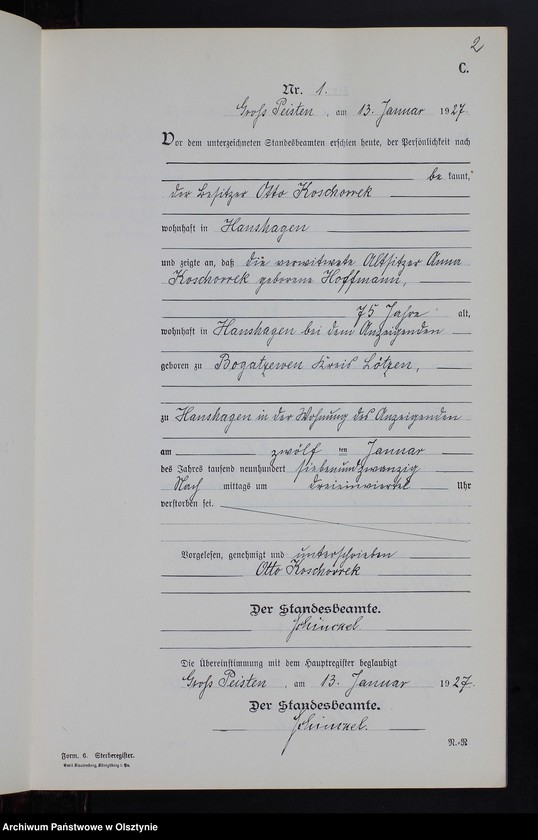 2
C.
Nr. 1.
Groß Peisten, am 13. Januar 1927.
Vor dem unterzeichneten Standesbeamten erschien heute, der Persönlichkeit nach
be kannt,
der Besitzer Otto Koschorrek
wohnhaft in Hanshagen
und zeigte an, daß die verwitwete Altsitzer Anna
Koschorrek geborene Hoffmann,
75 Jahre alt,
wohnhaft in Hanshagen bei dem Anzeigenden
geboren zu Bogatzewen Kreis Lötzen,
zu Hanshagen in der Wohnung des Anzeigenden
am zwölf ten Januar
des Jahres tausend neunhundert siebenundzwanzig
Nach mittags um dreieinviertel Uhr
verstorben sei.
Vorgelesen, genehmigt und unterschrieben
Otto Koschorrek
Der Standesbeamte.
Schinckel.
Die Übereinstimmung mit dem Hauptregister beglaubigt
Groß Peisten, am 13. Januar 1927.
Der Standesbeamte.
Schinckel.
R.-R
Form. 6. Sterberegister.
Archiwum Państwowe w Olsztynie